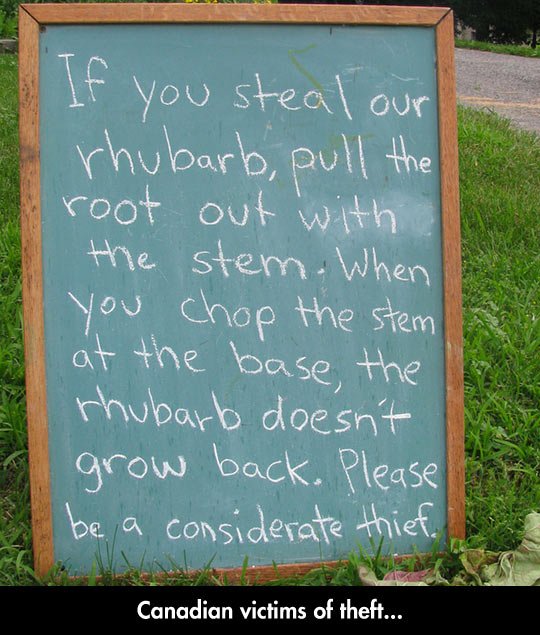 If you steal our
rhubarb, pull the
root out with
the stem. When
you chop the stem
at the base, the
rhubarb doesn't
grow back. Please
be a considerate thief.
Canadian victims of theft...